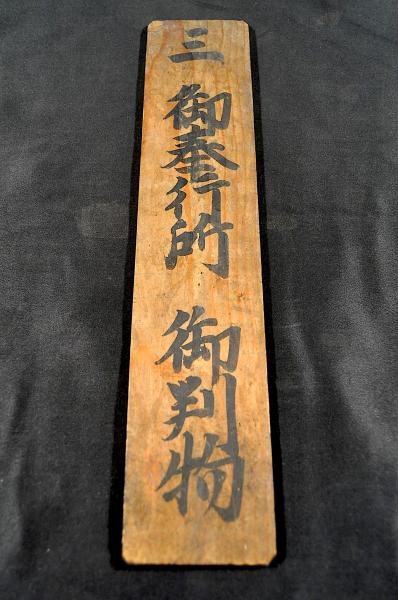 三 御奉行所 御判物